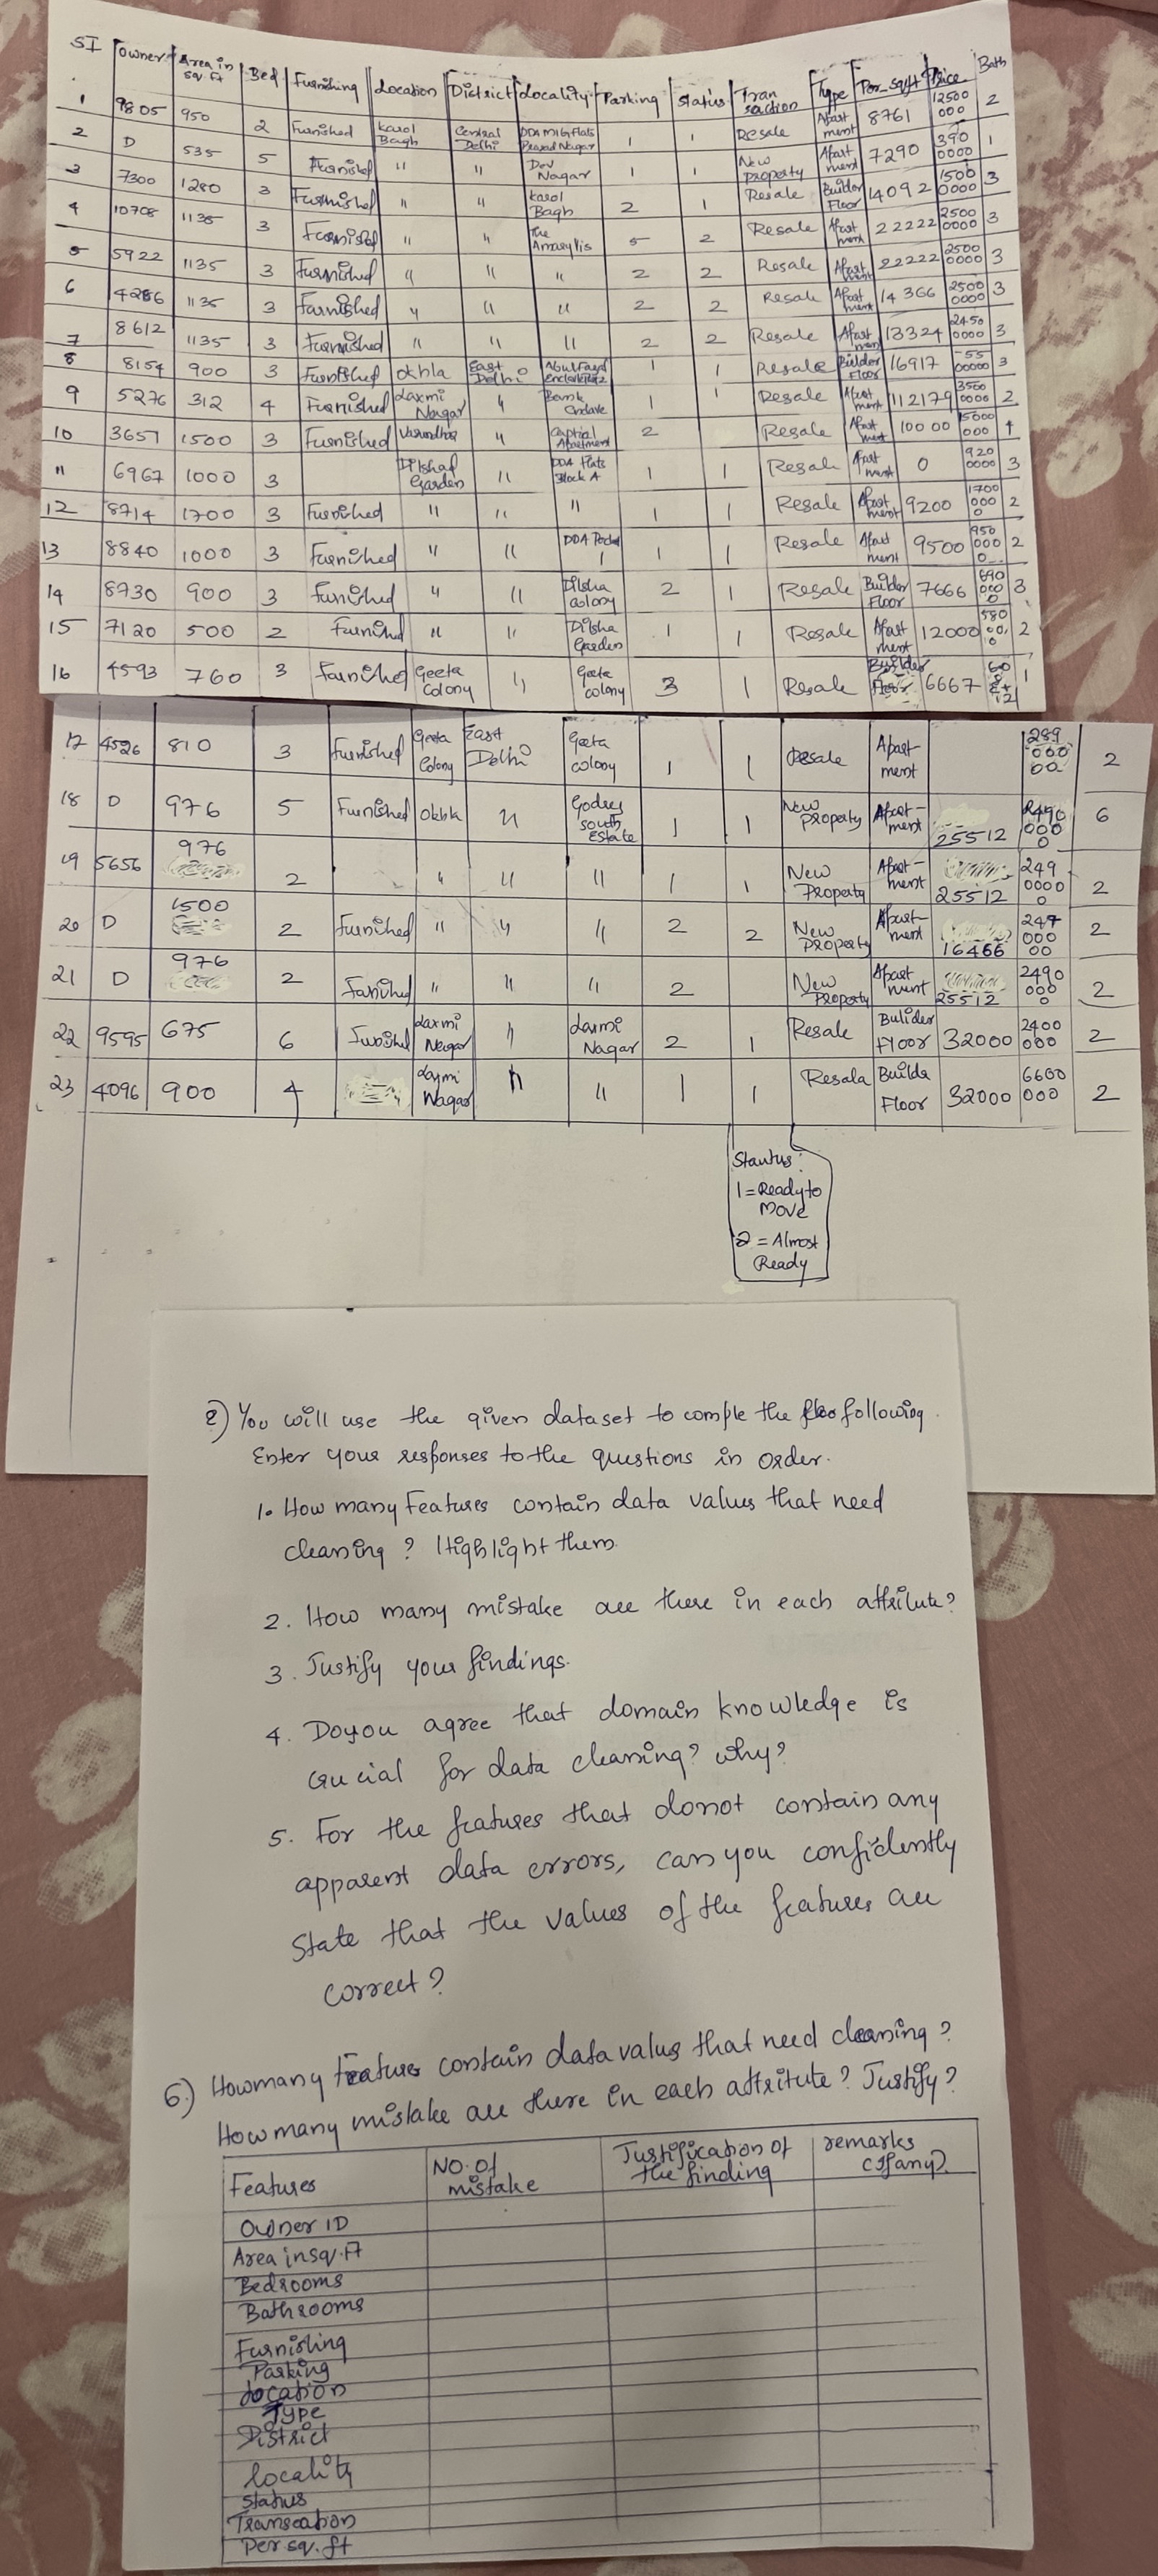 SI Owner Area in sq.ft Bed Furnishing Location District Locality Parking Status Tran saction Type Per_sqft Price Bath
1 9805 950 2 Furnished Karol Bagh Central Delhi DDA MIG Flats Prasad Nagar 1 1 Resale Apart ment 8761 12500 000 2
2 D 535 5 Furnished " " Dev Nagar 1 1 New property Apart ment 7290 390 0000 1
3 7300 1280 3 Furnished " " Karol Bagh 2 1 Resale Builder Floor 14092 1500 0000 3
4 10708 1135 3 Furnished " " The Amaryllis 5 2 Resale Apart ment 22222 2500 0000 3
5 5922 1135 3 Furnished " " " 2 2 Resale Apart ment 22222 2500 0000 3
6 4286 1135 3 Furnished " " " 2 2 Resale Apart ment 14366 2500 0000 3
7 8612 1135 3 Furnished " " " 2 2 Resale Apart ment 13324 2450 0000 3
8 8154 900 3 Furnished Okhla East Delhi 1 1 Resale Builder Floor 16917 55 00000 3
9 5276 312 4 Furnished Laxmi Nagar " Bank Enclave 1 1 Resale Apart ment 112179 3500 0000 2
10 3657 1500 3 Furnished " Captial Apartment 2 Resale Apart ment 10000 15000 000 4
11 6967 1000 3 Dilshad Garden " DDA Flats Block A 1 1 Resale Apart ment 0 920 0000 3
12 8714 1700 3 Furnished " " " 1 1 Resale Apart ment 9200 1700 000 0 2
13 8840 1000 3 Furnished " " DDA Pocket 1 1 1 Resale Apart ment 9500 950 000 0 2
14 8730 900 3 Furnished " " Dilsha Colony 2 1 Resale Builder Floor 7666 690 000 0 3
15 7120 500 2 Furnished " " Dilsha Garden 1 1 Resale Apart ment 12000 580 00, 0 2
16 4593 760 3 Furnished Geeta Colony " Geeta Colony 3 1 Resale Builder Floor 6667 1
17 4526 810 3 Furnished Geeta Colony East Delhi Geeta colony 1 1 Resale Apart ment 289 000 00 2
18 D 976 5 Furnished Okhla " Godrej South Estate 1 1 New Property Apart- ment 25512 2490 000 0 6
19 5656 976 2 " " " 1 1 New Property Apart- ment 25512 249 0000 0 2
20 D 1500 2 Furnished " " " 2 2 New Property Apart- ment 16466 247 000 00 2
21 D 976 2 Furnished " " " 2 New Property Apart ment 25512 2490 000 0 2
22 9595 675 6 Laxmi Nagar " Laxmi Nagar 2 1 Resale Bulider Floor 32000 2400 000 2
23 4096 900 4 Laxmi Nagar " " 1 1 Resala Builde Floor 32000 6600 000 2
Stantus:
1 = Ready to
Move
2 = Almost
Ready
2) You will use the given dataset to comple the following.
Enter your responses to the questions in order.
1. How many Features contain data values that need
cleaning? Highlight them.
2. How many mistake are there in each attribute?
3. Justify your findings.
4. Do you agree that domain knowledge is
crucial for data cleaning? why?
5. For the features that donot contain any
apparent data errors, can you confidently
state that the values of the features are
correct?
6.) How many Features contain data values that need cleaning?
How many mistake are there in each attritute? Justify?
Features NO. of mistake Justification of the finding remarks (If any)
Owner ID
Area in sq.ft
Bedrooms
Bathrooms
Furnishing
Parking
Location
Type
District
locality
Status
Transcation
Per sq.ft